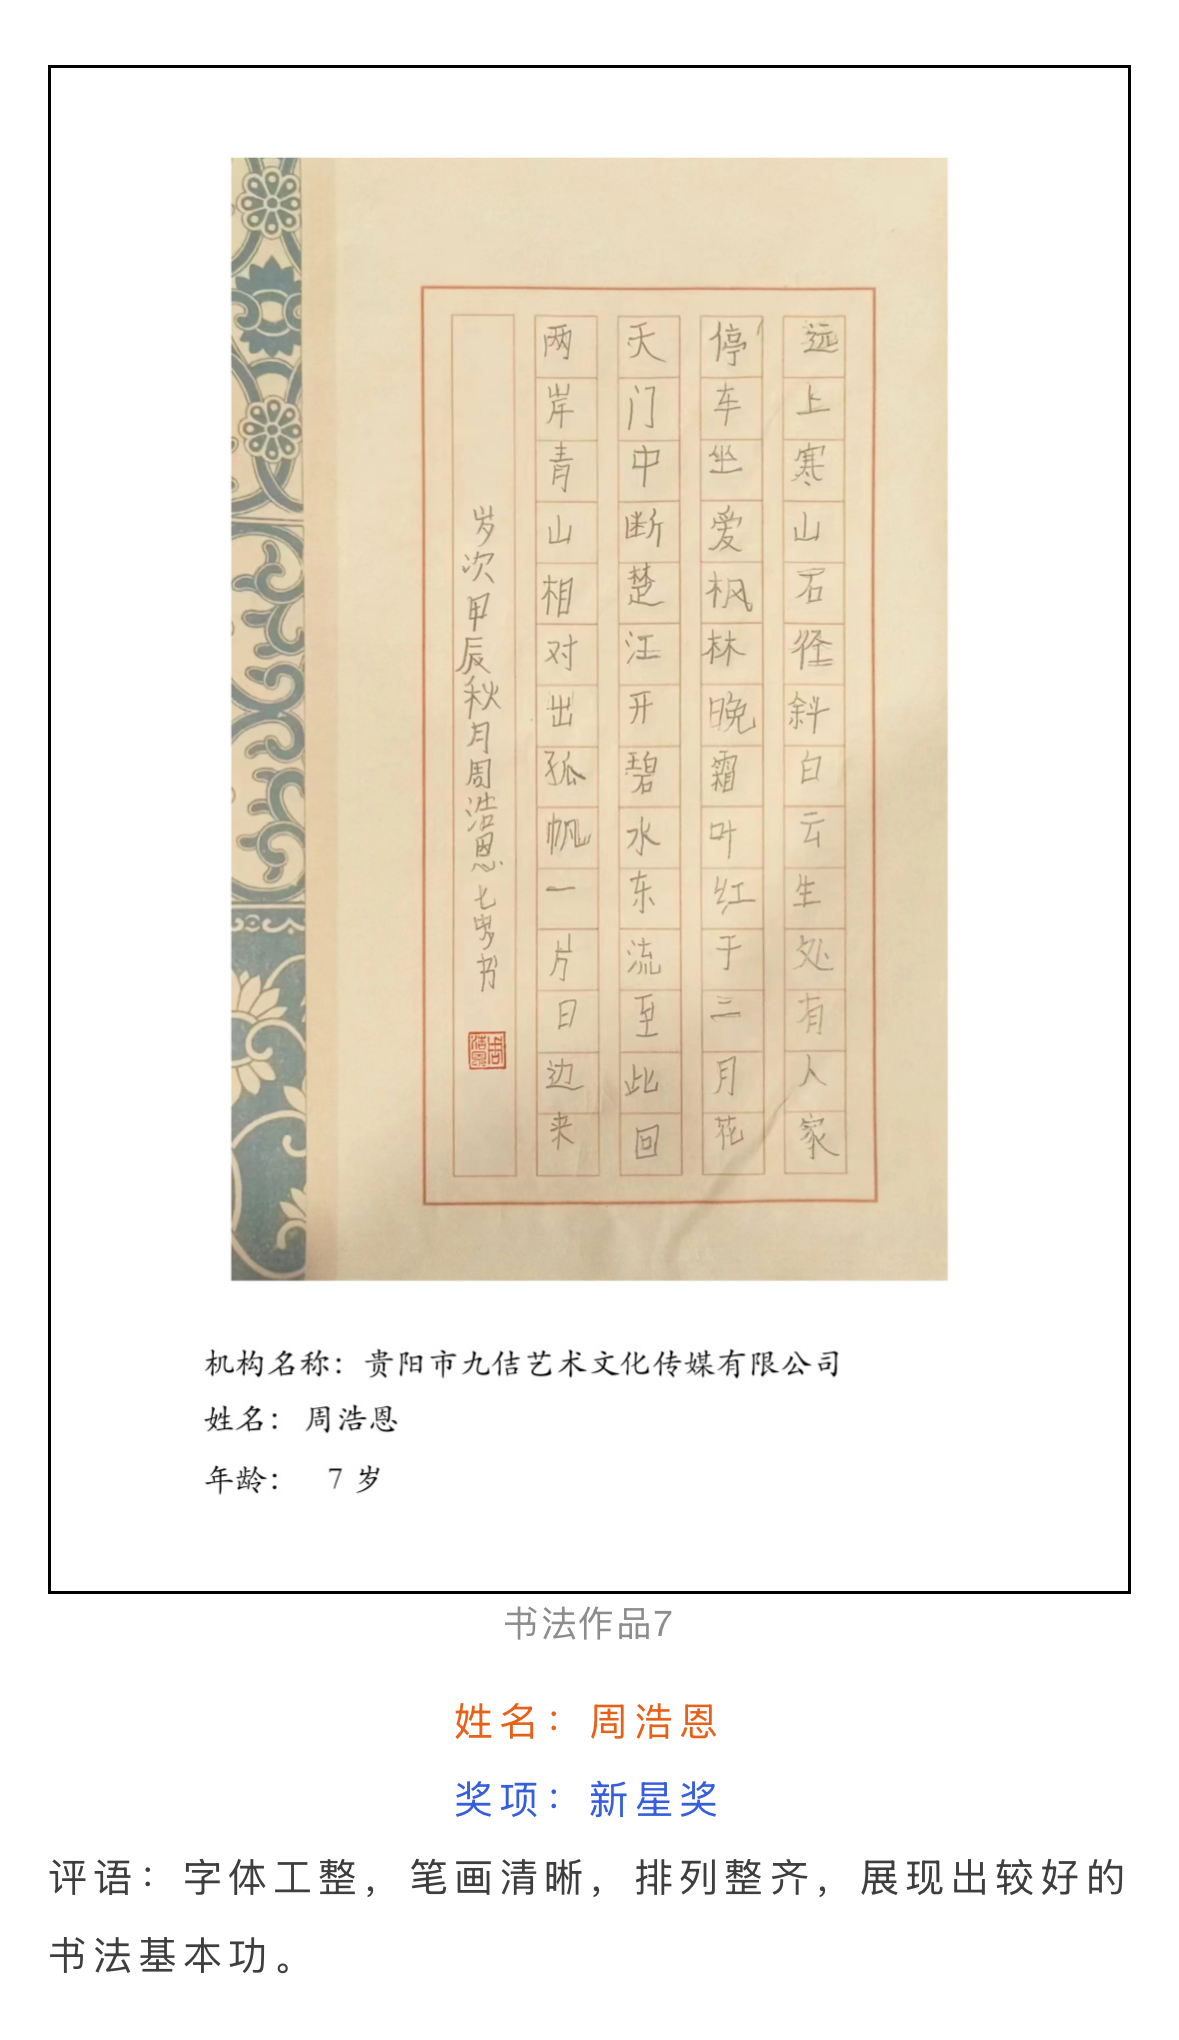 远上寒山石径斜白云生处有人家
停车坐爱枫林晚霜叶红于二月花
天门中断楚江开碧水东流至此回
两岸青山相对出孤帆一片日边来
岁次甲辰秋月周浩恩七岁书
周浩恩
机构名称：贵阳市九佶艺术文化传媒有限公司
姓名：周浩恩
年龄：7 岁
书法作品7
姓名：周浩恩
奖项：新星奖
评语：字体工整，笔画清晰，排列整齐，展现出较好的
书法基本功。